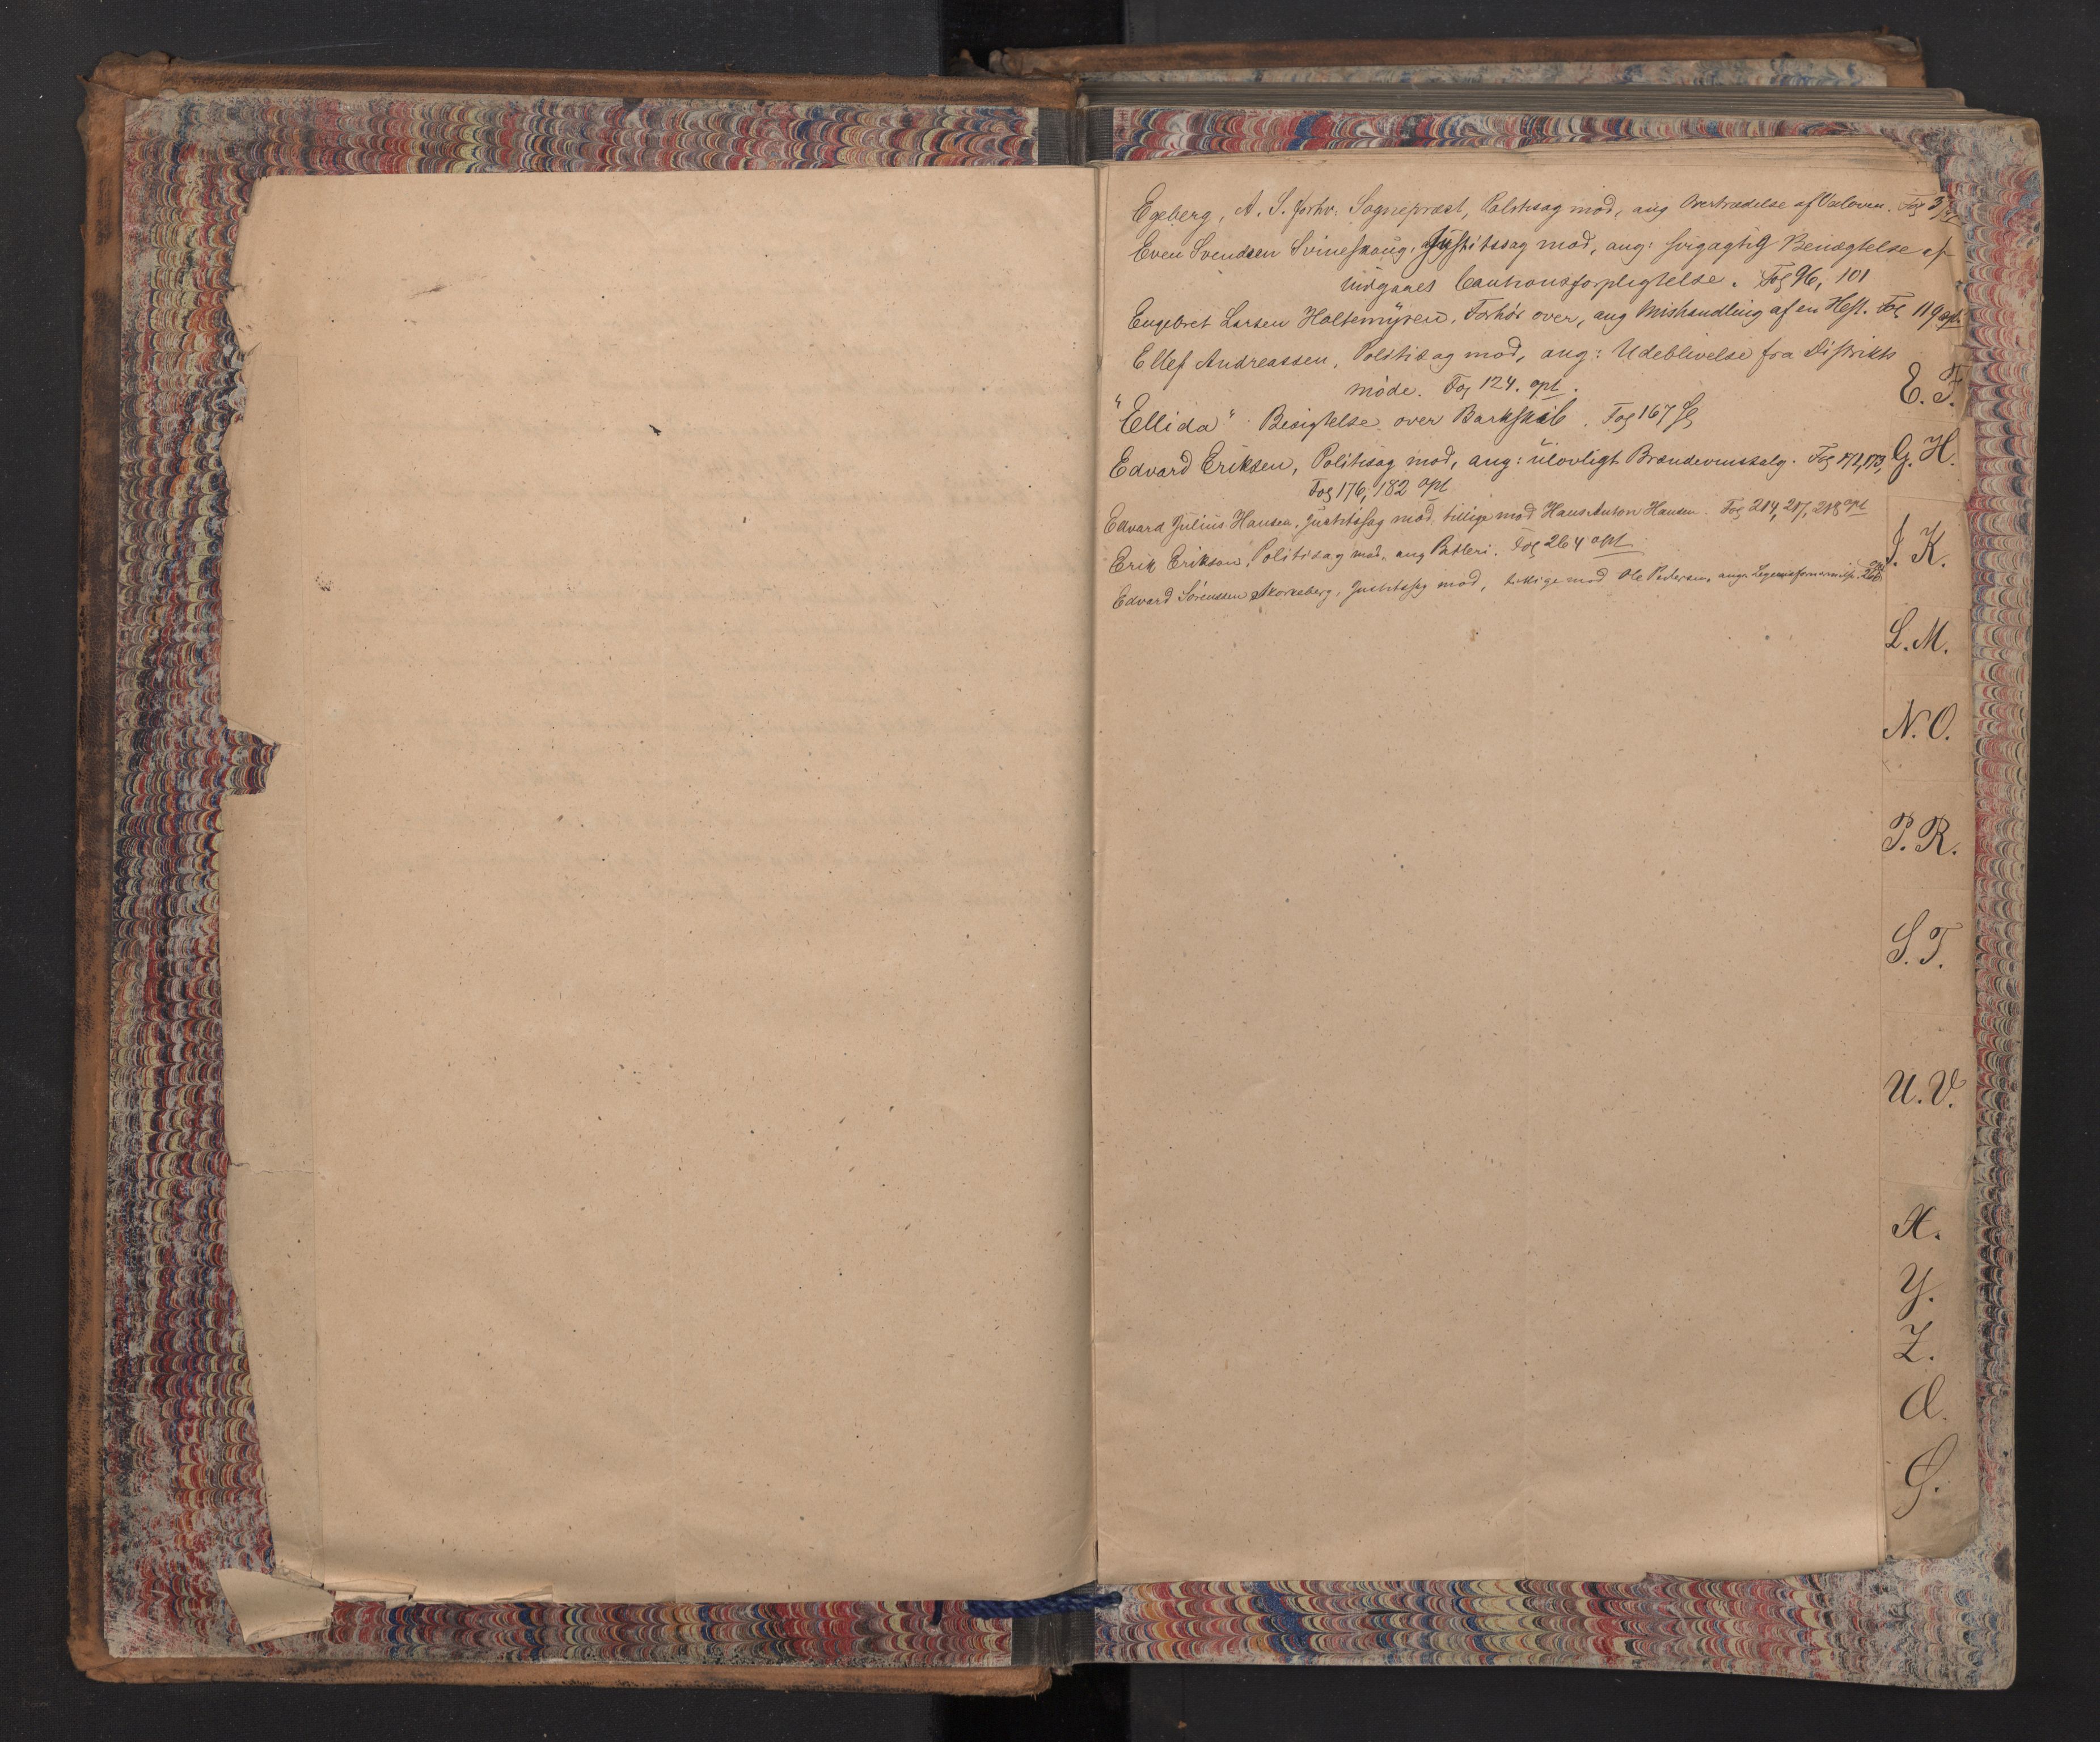 Egeberg, A. S. forhv: Sognepræst, Politisag mod, ang Overtrædelse af Valloven. Fog 3/
Even Svendsen Svineskaug, Justitssag mod, ang: svigagtig Benægtelse af
indgaaet Cautionsforpligtelse. Fog 96, 101
Engebret Larsen Holtemyren, Forhør over, ang Mishandling af en Hest. Fog 119 opt.
Ellef Andreassen, Politisag mod, ang: Udeblivelse fra Distrikts
møde. Fog 124. opt.
"Ellida" Besigtelse over Barkskib. Fog 167
Edvard Eriksen, Politisag mod, ang: ulovligt Brændevinssalg. Fog 172, 173,
Fog 176, 182 opt
Edvard Julius Hansen, Justitssag mod, tillige mod Hans Anton Hansen. Fog 214, 217, 218 opt
Erik Erikson, Politisag mod, ang Betleri. Fog 264 opt
Edvard Sørenssen Skorkeberg, Justitssag mod, tillige mod Ole Pedersen, ang. Legemsfornærmelse.
E. F.
G. H.
J. K.
L. M.
N. O.
P. R.
S. T.
U. V.
X.
Y.
Z.
Ø.